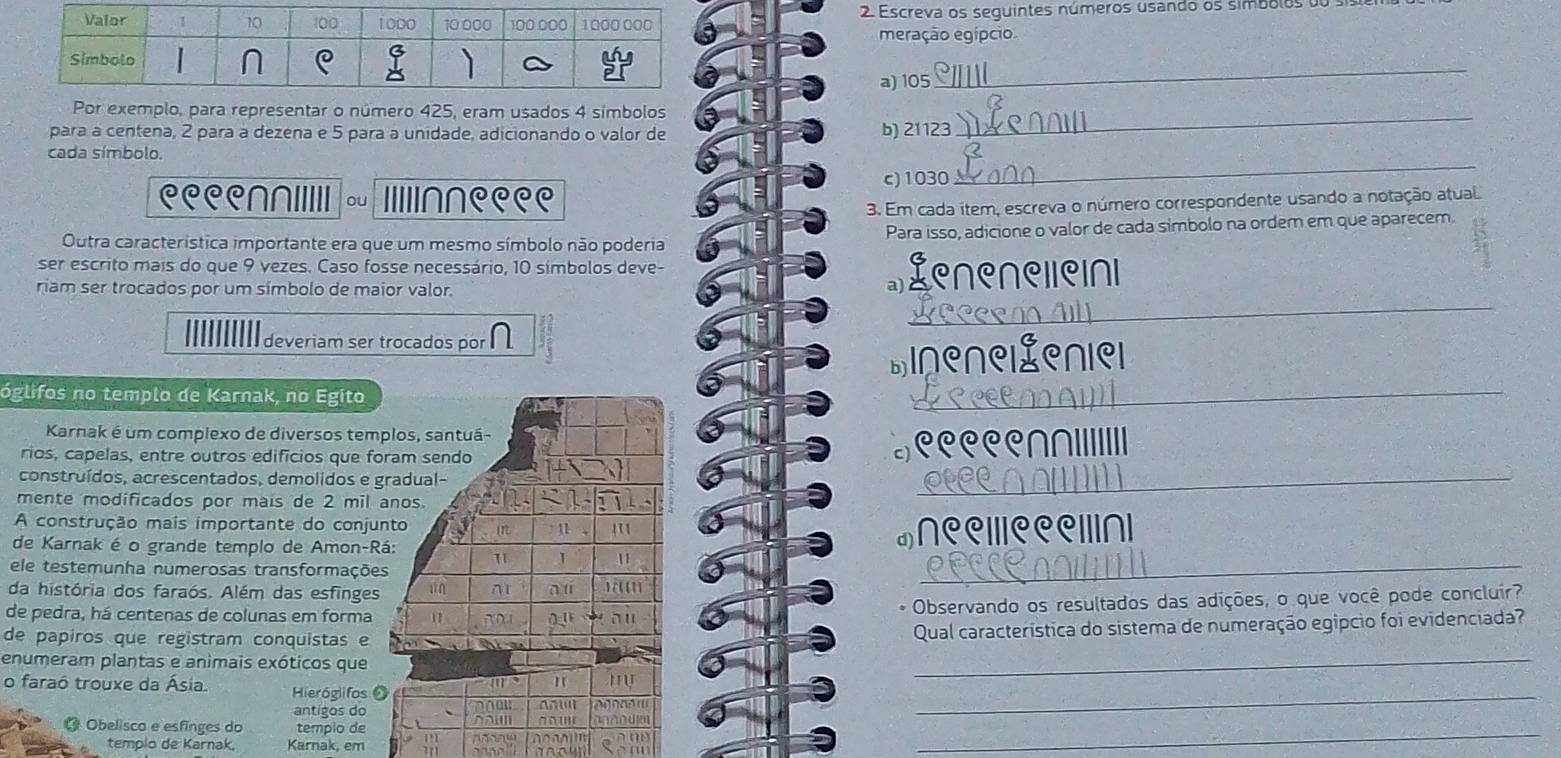 Valor 1 10 100 1 000 10 000 100 000 1 000 000
Símbolo
Por exemplo, para representar o número 425, eram usados 4 símbolos
para a centena, 2 para a dezena e 5 para a unidade, adicionando o valor de
cada símbolo.
ou
Outra característica importante era que um mesmo símbolo não poderia
ser escrito mais do que 9 vezes. Caso fosse necessário, 10 símbolos deve-
riam ser trocados por um símbolo de maior valor.
deveriam ser trocados por
óglifos no templo de Karnak, no Egito
Karnak é um complexo de diversos templos, santuá-
rios, capelas, entre outros edifícios que foram sendo
construídos, acrescentados, demolidos e gradual-
mente modificados por mais de 2 mil anos.
A construção mais importante do conjunto
de Karnak é o grande templo de Amon-Rá:
ele testemunha numerosas transformações
da história dos faraós. Além das esfinges
de pedra, há centenas de colunas em forma
de papiros que registram conquistas e
enumeram plantas e animais exóticos que
o faraó trouxe da Ásia.
Hieróglifos
antigos do
templo de
Karnak, em
Obelisco e esfinges do
templo de Karnak,
2. Escreva os seguintes números usando os símbolos do
meração egípcio.
a) 105
b) 21123
c) 1030
3. Em cada item, escreva o número correspondente usando a notação atual.
Para isso, adicione o valor de cada símbolo na ordem em que aparecem.
a)
b)
c)
d)
• Observando os resultados das adições, o que você pode concluir?
Qual característica do sistema de numeração egípcio foi evidenciada?